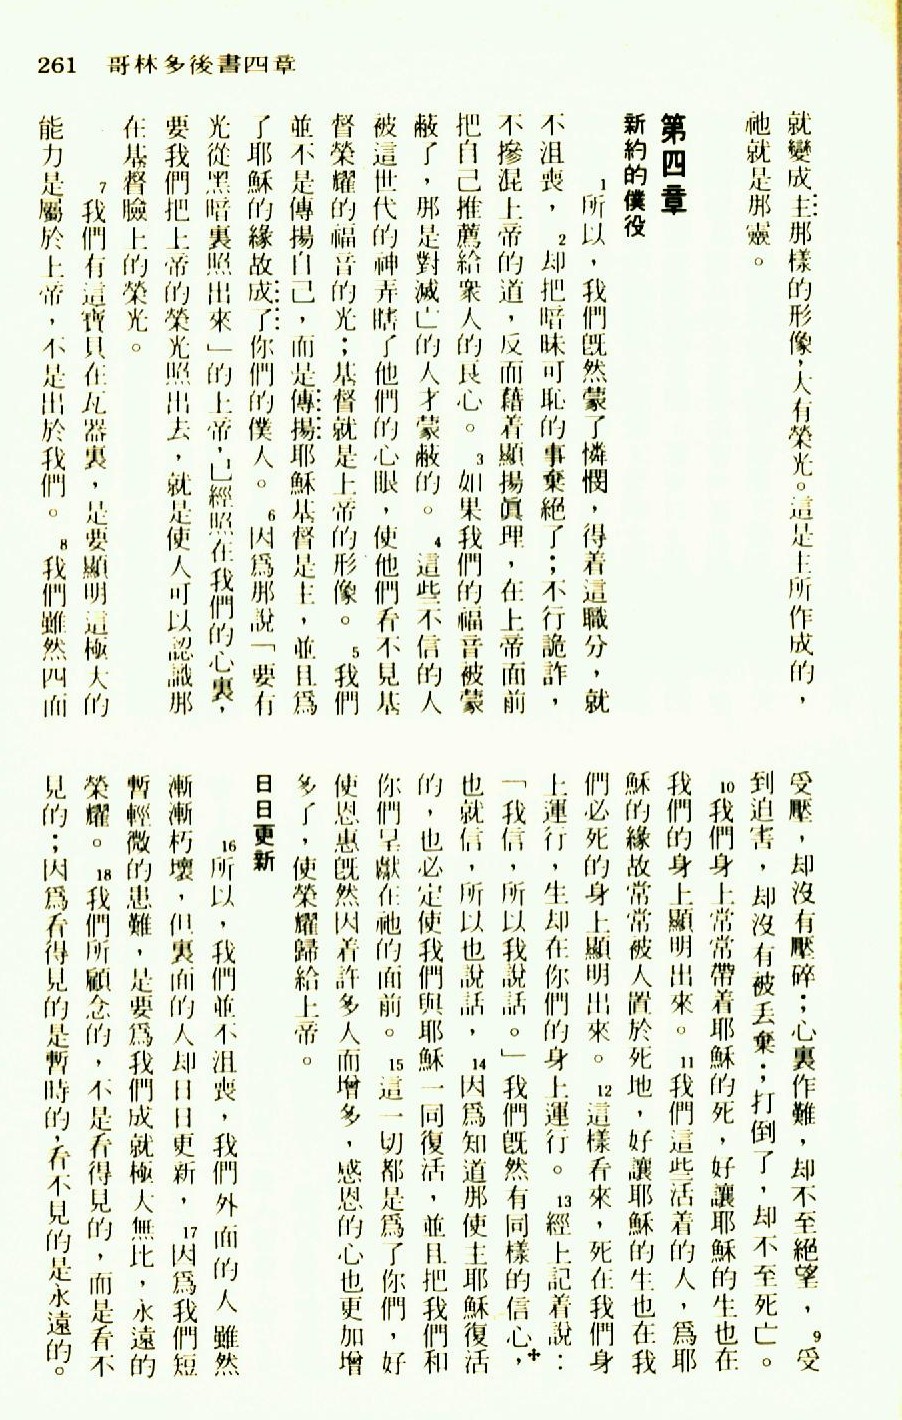 261 哥林多後書四章
就變成主那樣的形像，大有榮光。這是主所作成的，
祂就是那靈。
第四章
新約的僕役
1所以，我們旣然蒙了憐憫，得着這職分，就
不沮喪，2却把暗昧可恥的事棄絕了；不行詭詐，
不摻混上帝的道，反而藉着顯揚眞理，在上帝面前
把自己推薦給衆人的良心。3如果我們的福音被蒙
蔽了，那是對滅亡的人才蒙蔽的。4這些不信的人
被這世代的神弄瞎了他們的心眼，使他們看不見基
督榮耀的福音的光；基督就是上帝的形像。5我們
並不是傳揚自己，而是傳揚耶穌基督是主，並且爲
了耶穌的緣故成了你們的僕人。6因爲那說「要有
光從黑暗裏照出來」的上帝，已經照在我們的心裏，
要我們把上帝的榮光照出去，就是使人可以認識那
在基督臉上的榮光。
7我們有這寶貝在瓦器裏，是要顯明這極大的
能力是屬於上帝，不是出於我們。8我們雖然四面
受壓，却沒有壓碎；心裏作難，却不至絕望，9受
到迫害，却沒有被丢棄；打倒了，却不至死亡。
10我們身上常常帶着耶穌的死，好讓耶穌的生也在
我們的身上顯明出來。11我們這些活着的人，爲耶
穌的緣故常常被人置於死地，好讓耶穌的生也在我
們必死的身上顯明出來。12這樣看來，死在我們身
上運行，生却在你們的身上運行。13經上記着說：
「我信，所以我說話。」我們旣然有同樣的信心，
也就信，所以也說話，14因爲知道那使主耶穌復活
的，也必定使我們與耶穌一同復活，並且把我們和
你們呈獻在祂的面前。15這一切都是爲了你們，好
使恩惠旣然因着許多人而增多，感恩的心也更加增
多了，使榮耀歸給上帝。
日日更新
16所以，我們並不沮喪，我們外面的人雖然
漸漸朽壞，但裏面的人却日日更新，17因爲我們短
暫輕微的患難，是要爲我們成就極大無比，永遠的
榮耀。18我們所顧念的，不是看得見的，而是看不
見的；因爲看得見的是暫時的，看不見的是永遠的。